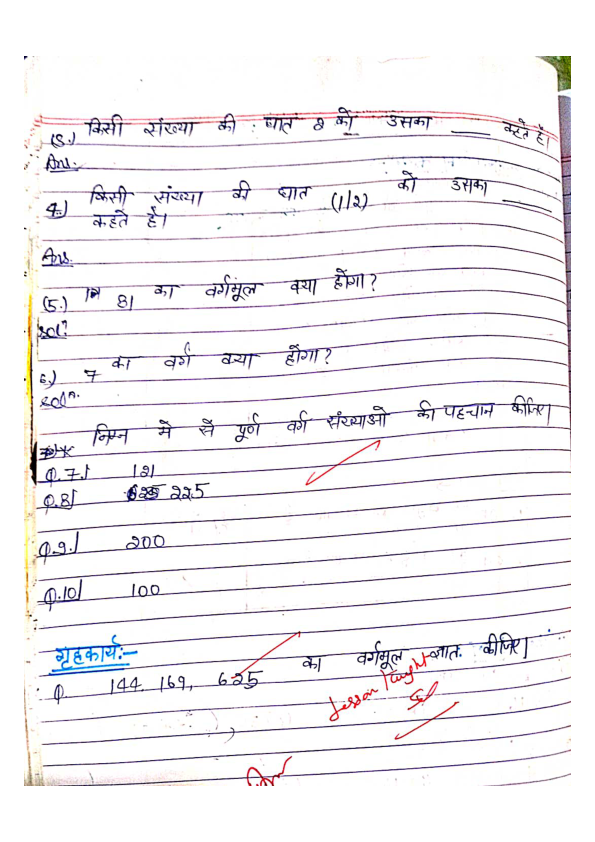 (3.) किसी संख्या की घात 2 को उसका ___ कहते हैं।
Ans.
4.) किसी संख्या की घात (1/2) को उसका ___
कहते हैं।
Ans.
(5.) 81 का वर्गमूल क्या होगा?
Solⁿ
6.) 7 का वर्ग क्या होगा?
Solⁿ.
निम्न में से पूर्ण वर्ग संख्याओ की पहचान कीजिए।
Q.7.) 121
Q.8) 225
Q.9.) 200
Q.10) 100
गृहकार्य:-
Q 144, 169, 625 का वर्गमूल ज्ञात कीजिए।
Lesson Taught